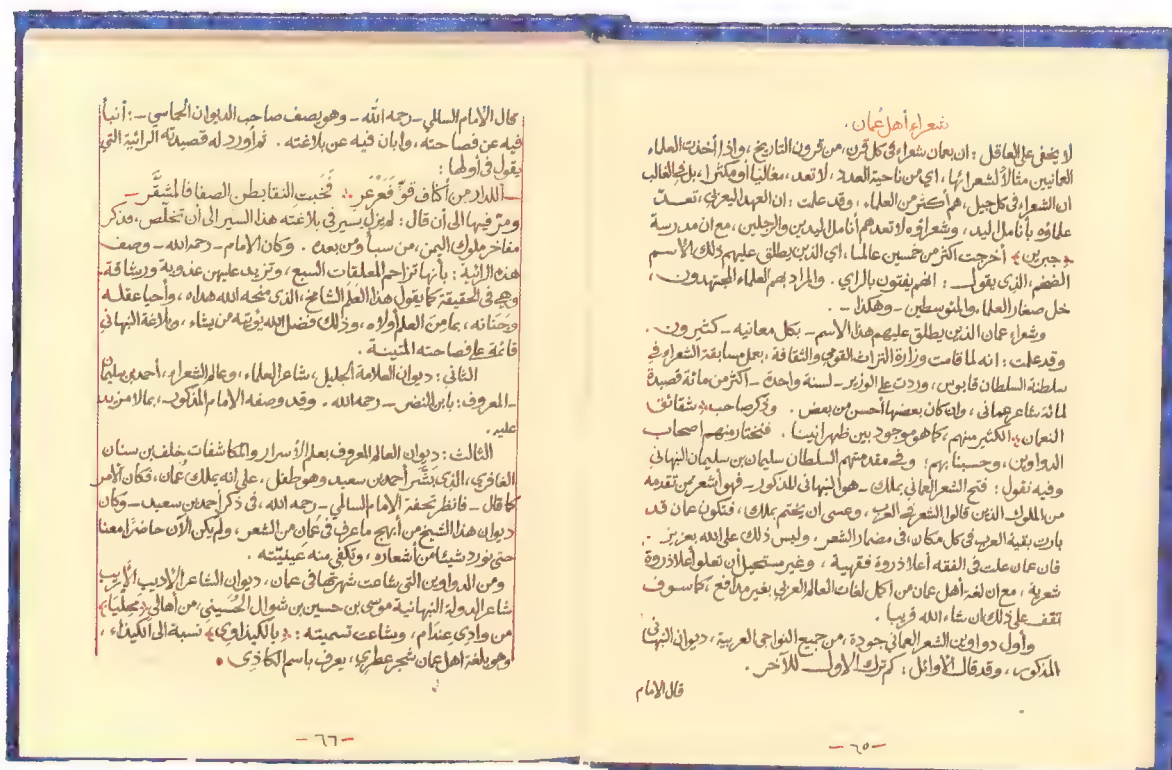 شعراء أهل عُمان.
لا يخفى على العاقل: ان بعمان شعراء فى كل قرن، من قرون التاريخ، واذا أخذت العلماء
العمانيين مثالاً لشعرائها، اي من ناحية العدد، لا تعد، مغالياً أو مكثراً، بل فى الغالب
ان الشعراء فى كل جيل، هم أكثر من العلماء، وقد علمت: ان العهد اليعربي، تعـدّ
علماؤه بأنامل اليد، وشعراؤه لا تعدهم أنامل اليدين والرجلين، مع ان مدرسة
«جبرين» أخرجت اكثر من خمسين عالما، اي الذين يطلق عليهم ذلك الاسم
الفخم، الذى يقول: انهم يفتون بالراي. والمراد بهم العلماء المجتهدون،
خل صغار العلماء والمتوسطين - وهكذا -.
وشعراء عمان الذين يطلق عليهم هذا الاسم - بكل معانيه - كثيرون.
وقد علمت: انه لما قامت وزارة التراث القومي والثقافة، بعمل مسابقة الشعراء في
سلطنة السلطان قابوس، وردت على الوزير - لسنة واحدة - اكثر من مائة قصيدة
لمائة شاعر عماني، وان كان بعضها أحسن من بعض. وذكر صاحب «شقائق
النعمان» الكثير منهم، كما هو موجود بين ظهرانينا. فنختار منهم اصحاب
الدواوين، وحسبنا بهم؛ وفي مقدمتهم السلطان سليمان بن سليمان النبهاني
وفيه نقول: فتح الشعر العماني بملك - هو النبهاني المذكور - فهو أشعر من تقدمه
من الملوك الذين قالوا الشعر فى العرب، وعسى ان يختم بملك، فتكون عمان قد
بارت بقية العرب فى كل مكان، في مضمار الشعر، وليس ذلك على الله بعزيز -.
فان عمان علت في الفقه أعلا ذروة فقهية، وغير مستحيل أن تعلو أعلا ذروة
شعرية، مع ان لغة أهل عمان من اكمل لغات العالم العربي بغير مدافع، كما سوف
تقف على ذلك ان شاء الله قريبا.
وأول دواوين الشعر العماني جودة، من جميع النواحى العربية، ديوان النبهانى
المذكور، وقد قال الأوائل: كم ترك الاول للآخر.
قال الامام
- ٦٥ -
قال الإمام السالمي - رحمه الله - وهو يصف صاحب الديوان الحماسي -: أنبأ
فيه عن فصاحته، وابان فيه عن بلاغته. ثم أورد له قصيدته الرائية التي
يقول فى أولها:
- أللدار من أكناف قوّ فَعَرْعَرِ ∴ فخَبت النقا بطن الصفا فالمشقَّر -
ومرّ فيها الى أن قال: لم يزل يسير فى بلاغته هذا السير الى أن تخلّص، فذكر
مفاخر ملوك اليمن، من سبأ ومن بعده. وكان الامام - رحمه الله - وصف
هذه الرائية: بأنها تزاحم المعلقات السبع، وتزيد عليهن عذوبة ورشاقة.
وهي في الحقيقة كما يقول هذا العَلَم الشامخ، الذى منحه الله هداه، وأحيا عقله
وجَنَانه، بما من العلم أولاه، وذلك فضل الله يؤتيه من يشاء، وبلاغة النبهاني
قائمة على فصاحته المتينة.
الثاني: ديوان العلامة الجليل، شاعر العلماء، وعالم الشعراء، أحمد بن سليمان
- المعروف: بابن النضر - رحمه الله. وقد وصفه الامام المذكور، بما لا مزيد
عليه.
الثالث: ديوان العالم المعروف بعلم الأسرار والمكاشفات خلف بن سنان
الغافري، الذى بَشَّر أحمد بن سعيد وهو طفل، على انه يملك عُمان، فكان الأمر
كما قال - فانظر تحفة الإمام السالمي - رحمه الله، فى ذكر أحمد بن سعيد - وكان
ديوان هذا الشيخ من أبهج ما عرف فى عُمان من الشعر، ولم يكن الآن حاضرا معنا
حتى نورد شيئا من أشعاره، وتكفي منه عينيّته.
ومن الدواوين التي شاعت شهرتها في عمان، ديوان الشاعر الأديب الأريب
شاعر الدولة النبهانية موسى بن حسين بن شوال الحُسيني، من أهالي «محليا»
من وادي عندام، وشاعت تسميته: «بالكيذاوي» نسبة الى الكيذاء،
وهو بلغة اهل عمان شجر عطري، يعرف باسم الكاذى.
- ٦٦ -